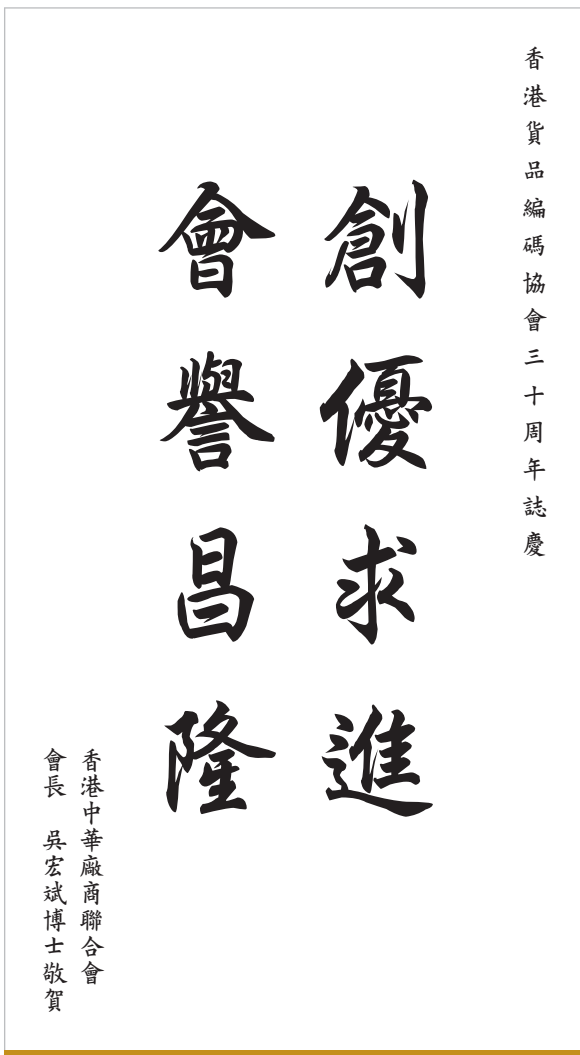 香港貨品編碼協會三十周年誌慶
創優求進
會譽昌隆
香港中華廠商聯合會
會長　吳宏斌博士敬賀